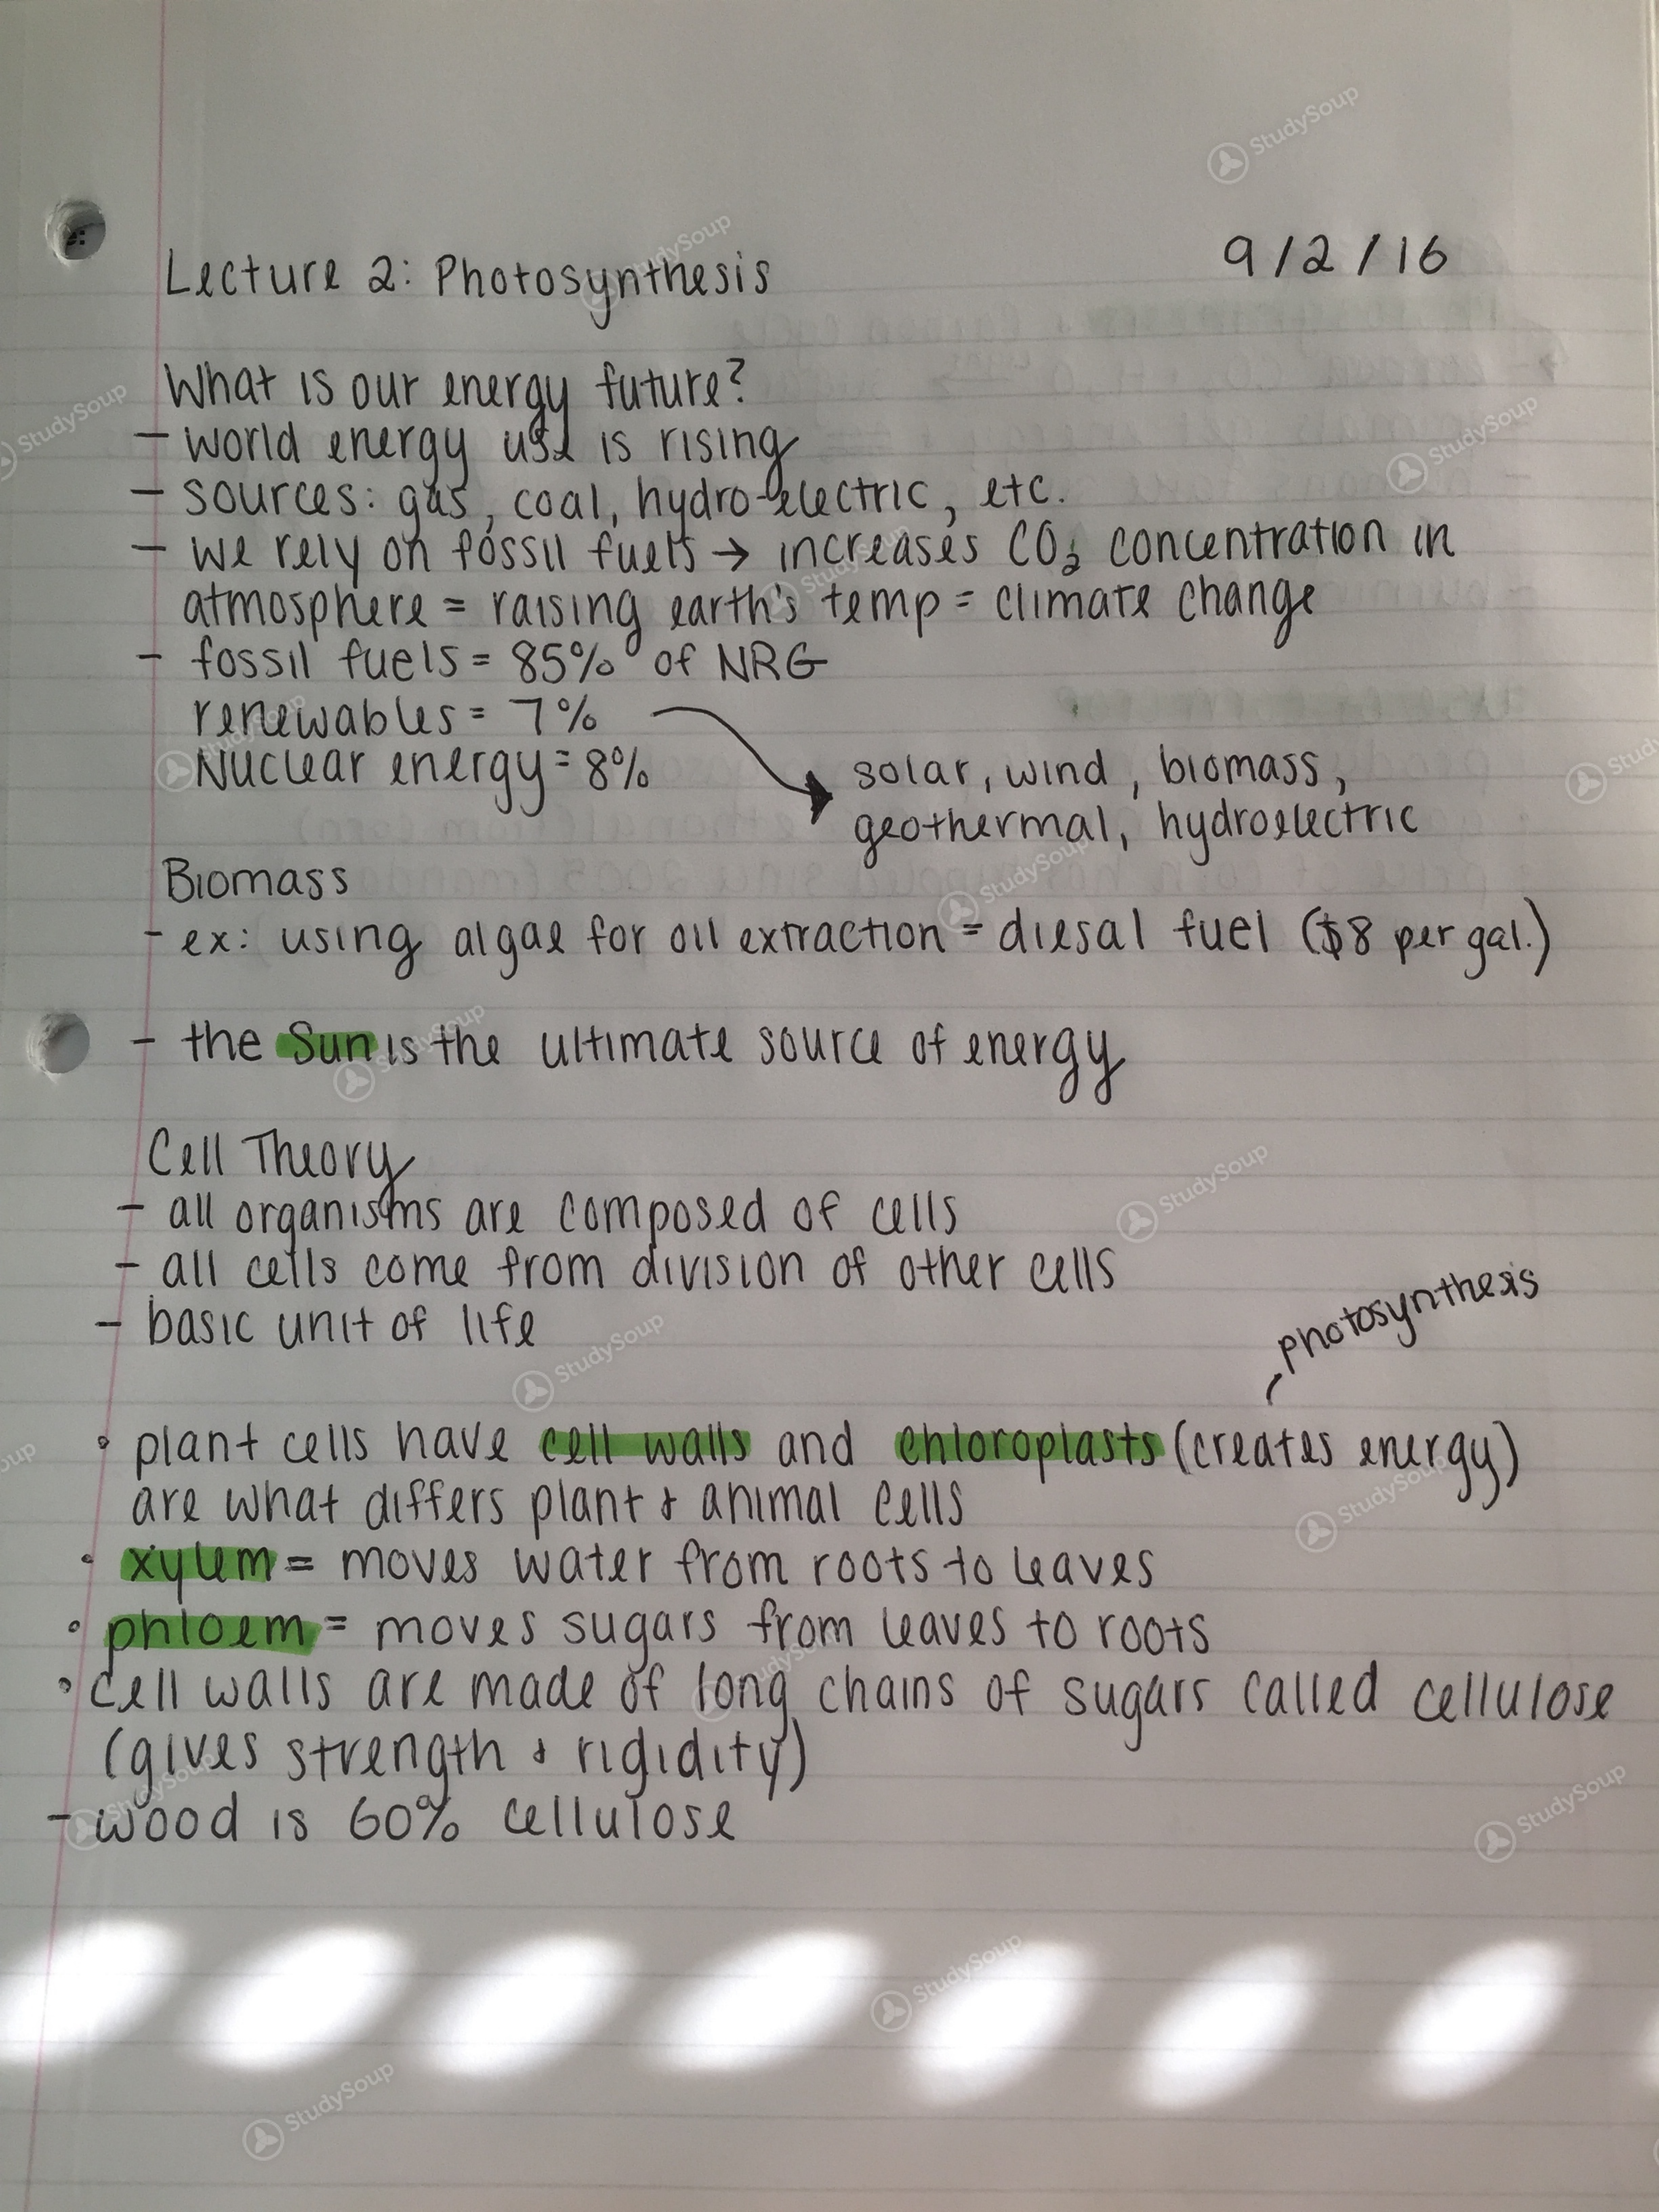 Lecture 2: Photosynthesis 9/2/16
What is our energy future?
- world energy use is rising
- sources: gas, coal, hydro-electric, etc.
- we rely on fossil fuels → increases CO₂ concentration in
atmosphere = raising earth's temp = climate change
- fossil fuels = 85% of NRG
renewables = 7%
Nuclear energy = 8%
solar, wind, biomass,
geothermal, hydroelectric
Biomass
- ex: using algae for oil extraction = diesal fuel ($8 per gal.)
- the Sun is the ultimate source of energy
Cell Theory
- all organisms are composed of cells
- all cells come from division of other cells
- basic unit of life
photosynthesis
• plant cells have cell walls and chloroplasts (creates energy)
are what differs plant & animal cells
• xylem = moves water from roots to leaves
• phloem = moves sugars from leaves to roots
• cell walls are made of long chains of sugars called cellulose
(gives strength & rigidity)
- wood is 60% cellulose
StudySoup